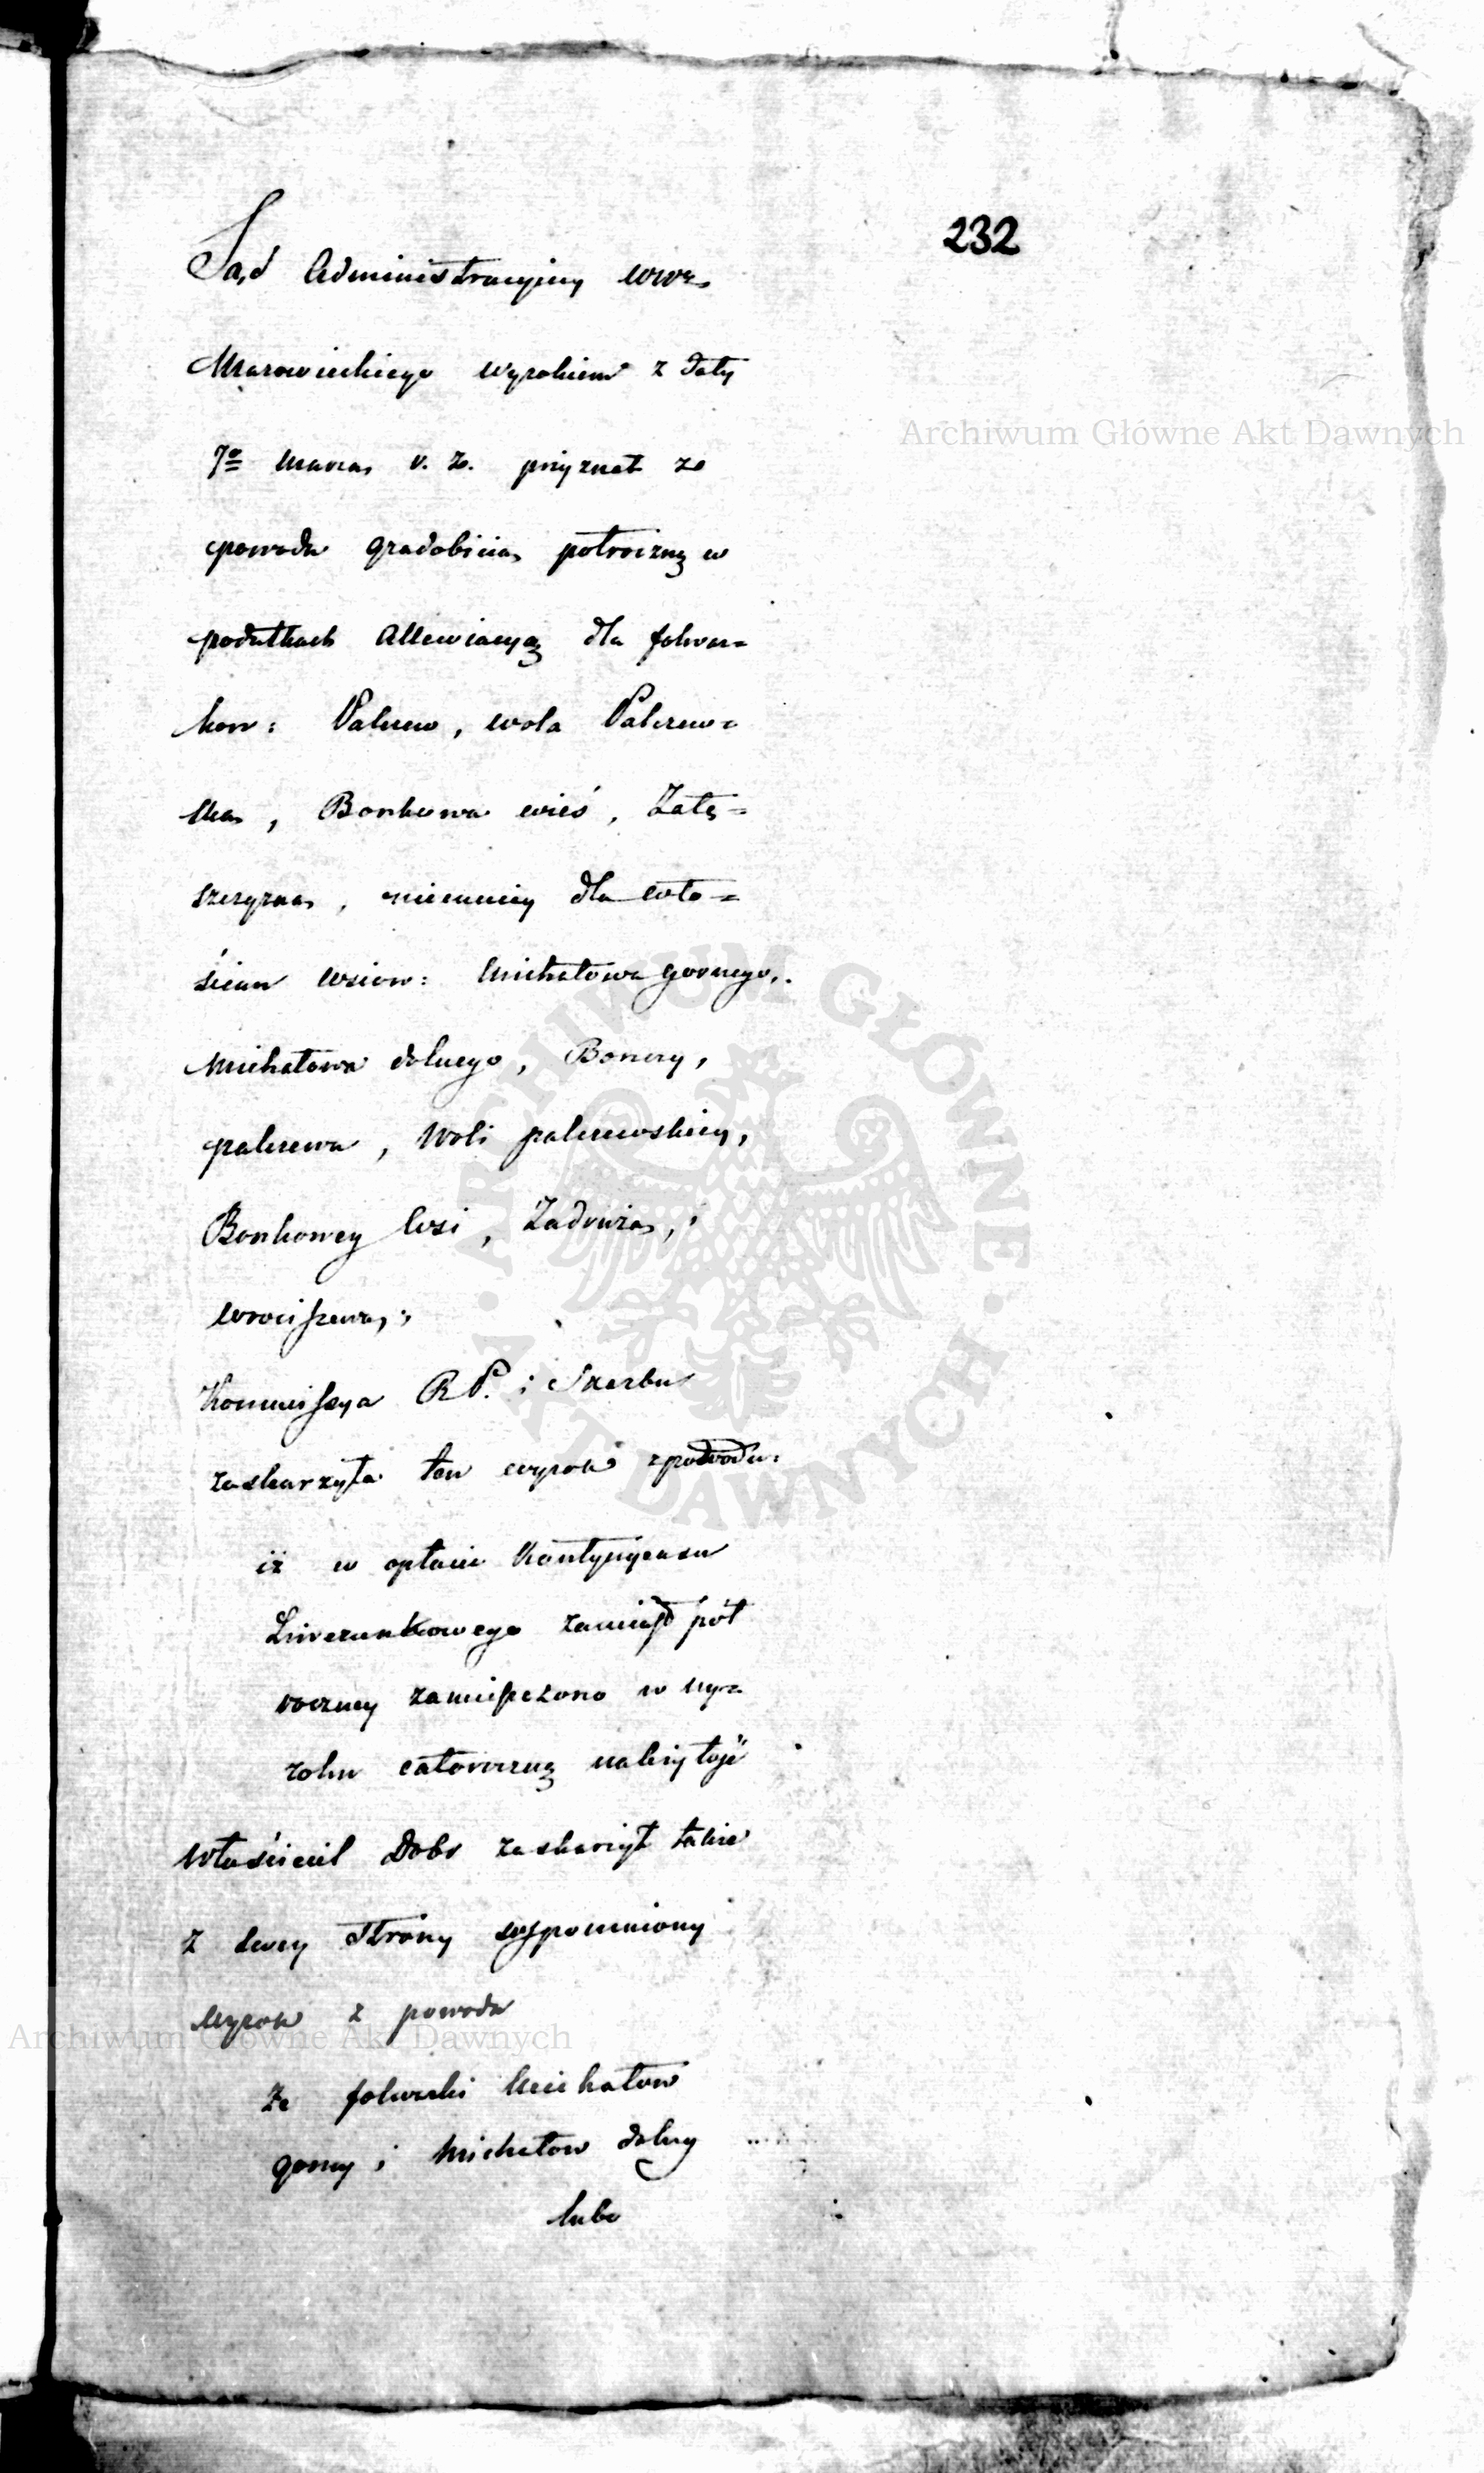 232
Sąd Administracyiny Wwa
Mazowieckiego wyrokiem z daty
7o Marca r. z. przyznał ze
powodu gradobicia, półroczną w
podatkach allewiacyą dla folwar=
kow: Palczew, wola Palczew=
ska, Bonkowa wieś,
niemniey dla wło=
ścian wsiow: Michałowa gornego,
Michałowa dolnego, Bonczy,
palczewa, Woli palczewskiey,
Bonkowey Wsi, i
Wrociszewa,;
Kommissya R P. i Skarbu
zaskarzyła ten wyrok z powodu:
iż w opłacie Kontyngensu
Liwerunkowego zamiast pół
roczney zamieszczono w wy=
roku całoroczną należytość
Właściciel Dobr zaskarżył także
z swey strony wspomniony
Wyrok z powodu
że folwarki Michałow
gorny i Michałow dolny
lubo
Archiwum Główne Akt Dawnych
ARCHIWUM GŁÓWNE AKT DAWNYCH
Archiwum Główne Akt Dawnych